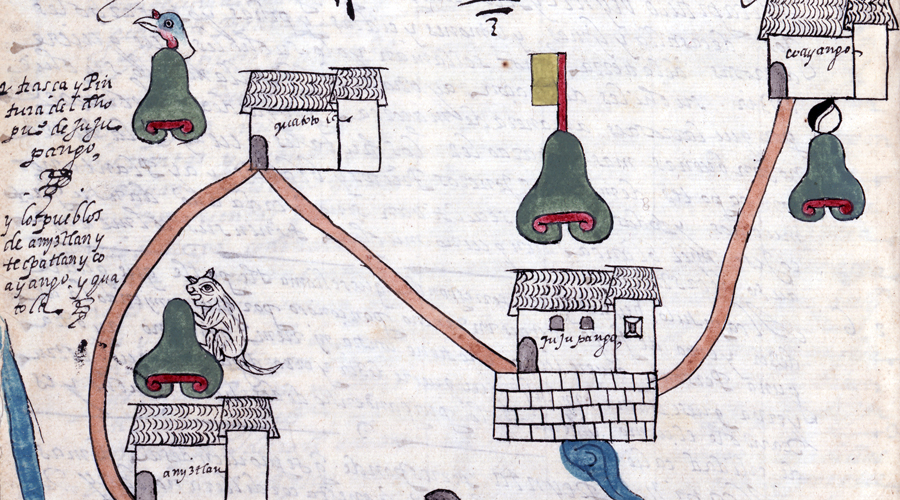 traça y Pin
tura del dho
pu.o de Juju
pango,
y los pueblos
de any3tlan y
tecpatlan y co
ayango. y qua
tola
quatotola
coayango,
Jujupango,
any3tlan